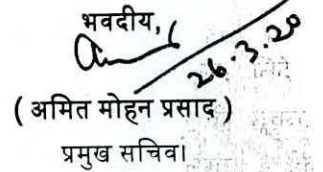 भवदीय,
26.3.20
( अमित मोहन प्रसाद )
प्रमुख सचिव।